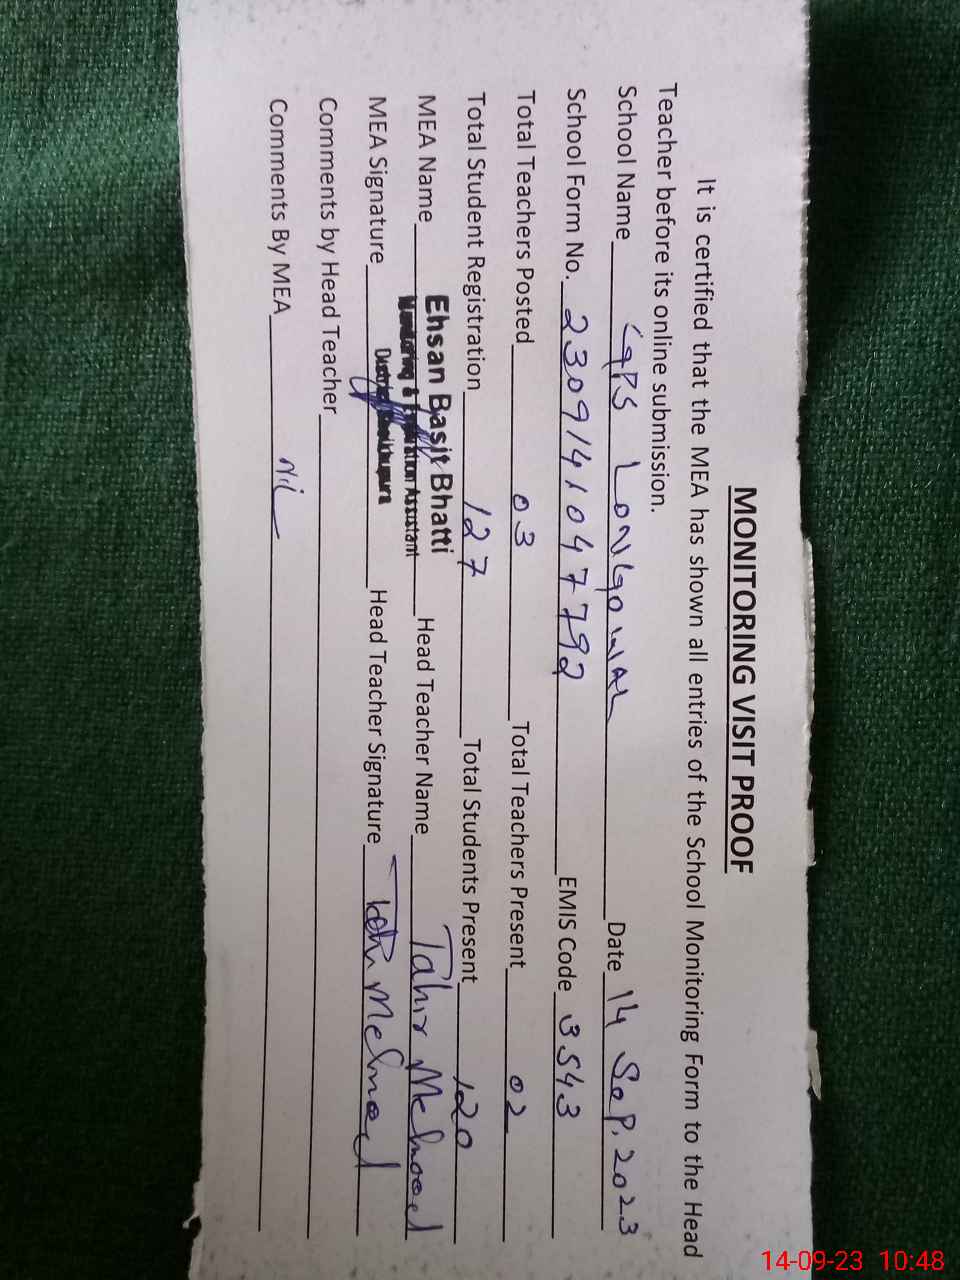 MONITORING VISIT PROOF
It is certified that the MEA has shown all entries of the School Monitoring Form to the Head
Teacher before its online submission.
School Name GPS Longowal Date 14 Sep. 2023
School Form No. 2309141047792 EMIS Code 3543
Total Teachers Posted 03 Total Teachers Present 02
Total Student Registration 127 Total Students Present 120
MEA Name Ehsan Basit Bhatti Head Teacher Name Tahir Mehmood
Monitoring & Evaluation Assistant
District Sheikhupura
MEA Signature Head Teacher Signature Tahir Mehmood
Comments by Head Teacher
Comments By MEA Nil
14-09-23 10:48